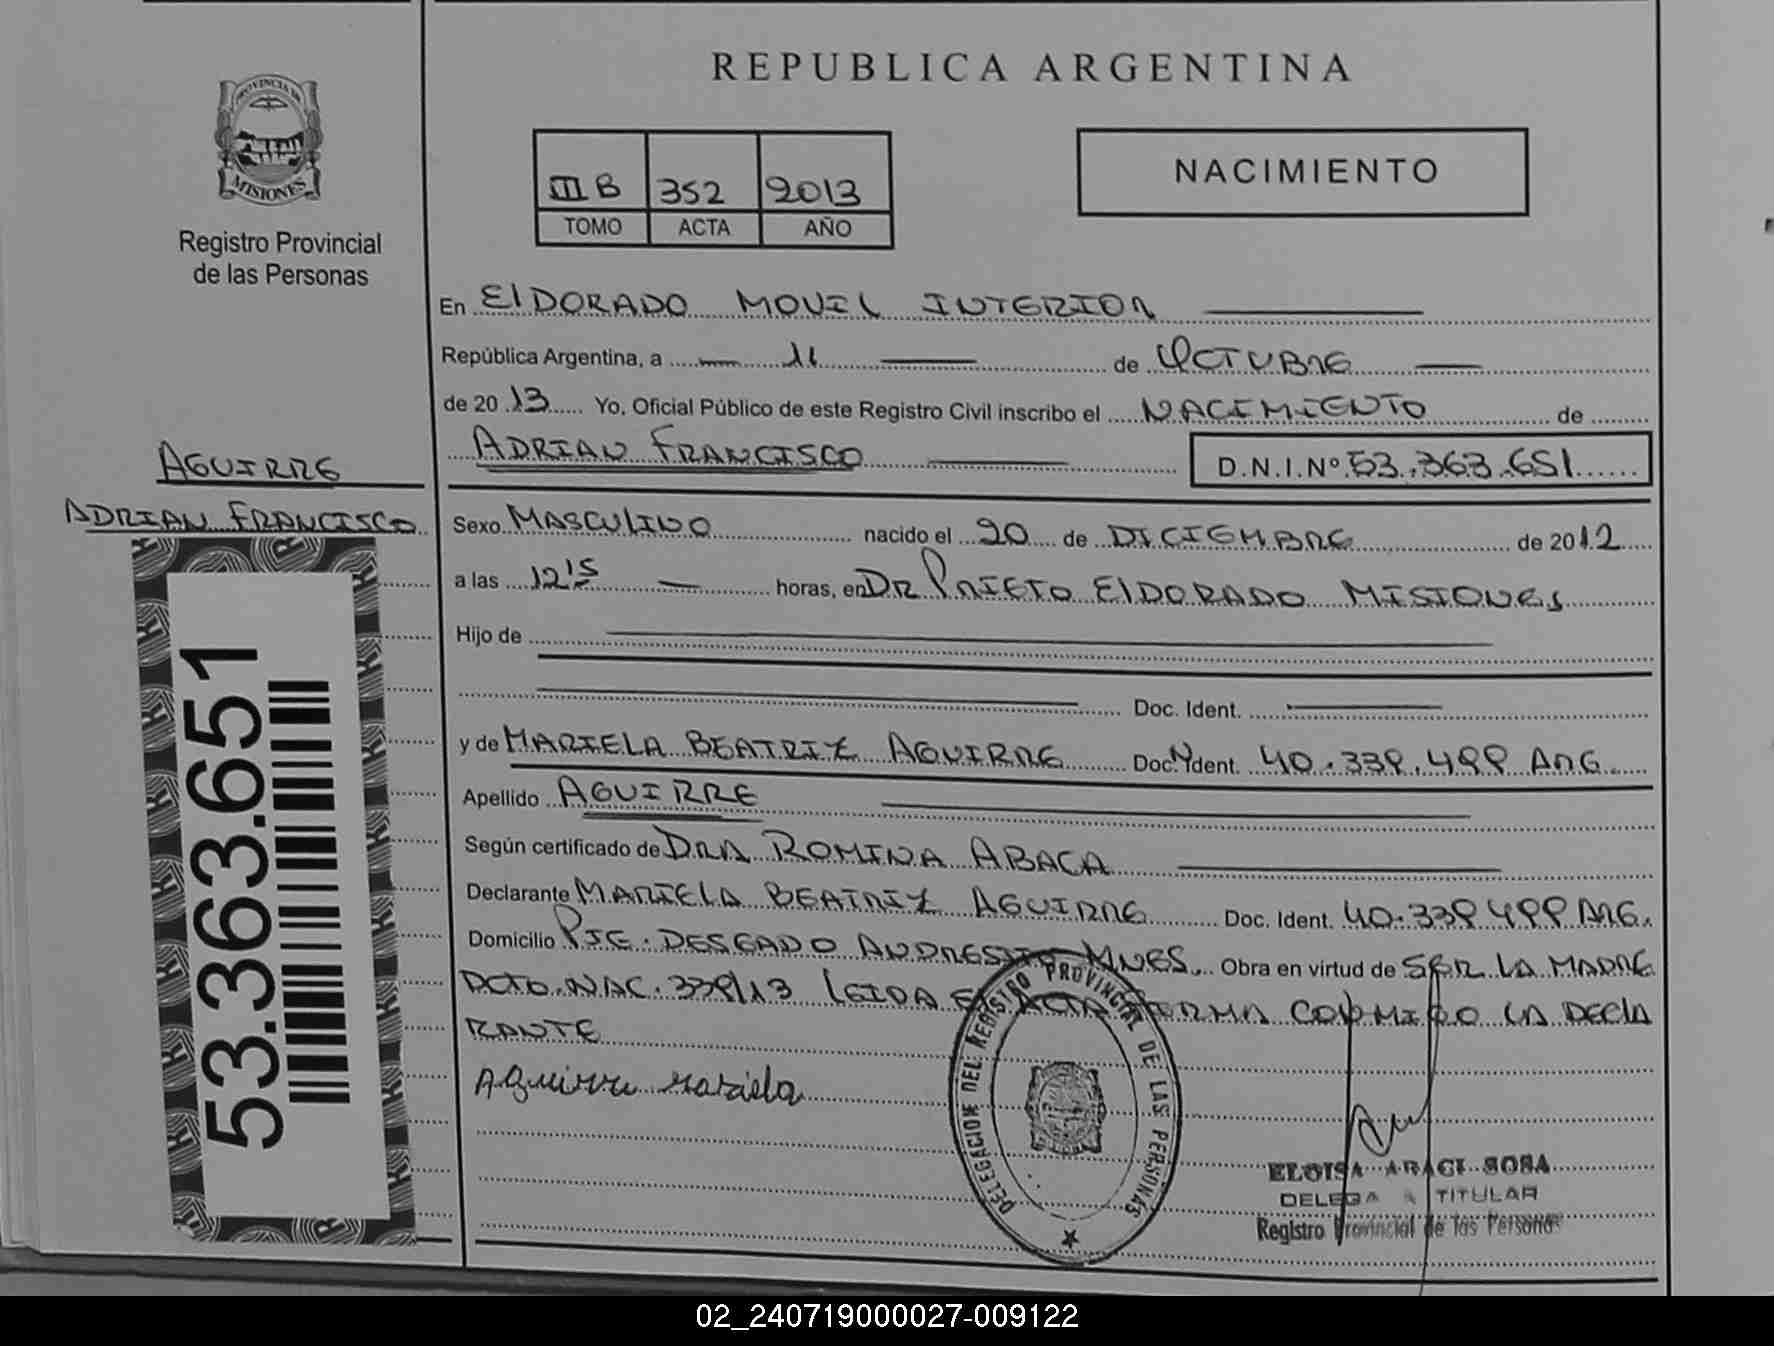 REPUBLICA ARGENTINA
PROVINCIA DE
MISIONES
Registro Provincial
de las Personas
III B 352 2013
TOMO ACTA AÑO
NACIMIENTO
En ElDORADO MOVIL INTERIOR
República Argentina, a 11 de OCTUBRE
de 2013 Yo, Oficial Público de este Registro Civil inscribo el NACIMIENTO de
ADRIAN FRANCISCO D.N.I.Nº 53.363.651
AGUIRRE
ADRIAN FRANCISCO
53.363.651
Sexo MASCULINO nacido el 20 de DICIEMBRE de 2012
a las 12'15 horas, en DR PRIETO ElDORADO MISIONES
Hijo de
Doc. Ident.
y de MARIELA BEATRIZ AGUIRRE Doc. Ident. 40.339.499 ARG.
Apellido AGUIRRE
Según certificado de DRA ROMINA ABACA
Declarante MARIELA BEATRIZ AGUIRRE Doc. Ident. 40.339.499 ARG.
Domicilio PJE. DESEADO ANDRESITO MNES. Obra en virtud de SER LA MADRE
DCTO.NAC.339/13 LEIDA EL ACTA FIRMA CONMIGO LA DECLA
RANTE
Aguirre Mariela
DELEGACION DEL REGISTRO PROVINCIAL DE LAS PERSONAS
ELOISA ARACI SOSA
DELEGADA TITULAR
Registro Provincial de las Personas
02_240719000027-009122